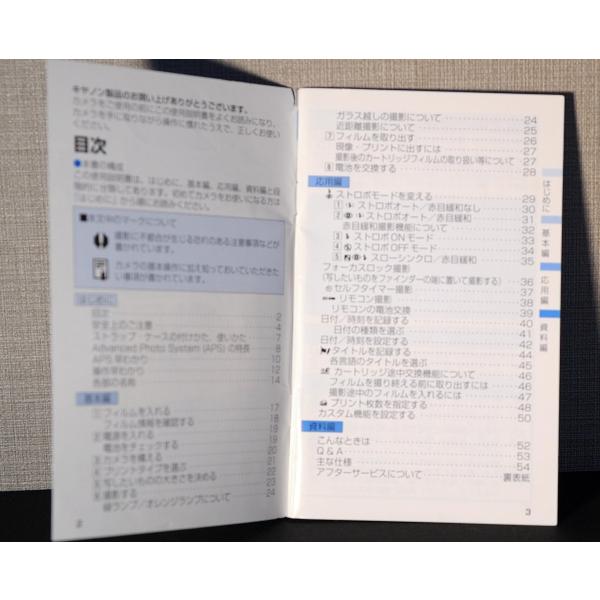 キヤノン製品のお買い上げありがとうございます。
カメラをご使用の前にこの使用説明書をよくお読みになり、
カメラを手に取りながら操作に慣れたうえで、正しくお使い
ください。
目次
●本書の構成
この使用説明書は、はじめに、基本編、応用編、資料編と段
階的に分類してあります。初めてカメラをお使いになる方は
「はじめに」から順にお読みください。
■本文中のマークについて
撮影に不都合が生じる恐れのある注意事項などが
書かれています。
カメラの基本操作に加え知っておいていただきた
い事項が書かれています。
はじめに
目次 2
安全上のご注意 4
ストラップ・ケースの付けかた、使いかた 7
Advanced Photo System (APS) の特長 8
APS早わかり 10
操作早わかり 12
各部の名称 14
基本編
1 フィルムを入れる 17
フィルム情報を確認する 18
2 電源を入れる 19
電池をチェックする 19
3 カメラを構える 20
4 プリントタイプを選ぶ 21
5 写したいものの大きさを決める 22
6 撮影する 23
緑ランプ/オレンジランプについて 24
2
ガラス越しの撮影について 24
近距離撮影について 25
7 フィルムを取り出す 26
現像・プリントに出すには 27
撮影後のカートリッジフィルムの取り扱い等について 27
8 電池を交換する 28
応用編
ストロボモードを変える 29
1 ストロボオート/赤目緩和なし 30
2 ストロボオート/赤目緩和 31
赤目緩和撮影機能について 32
3 ストロボONモード 33
4 ストロボOFFモード 34
5 スローシンクロ/赤目緩和 35
フォーカスロック撮影
(写したいものをファインダーの端に置いて撮影する) 36
セルフタイマー撮影 37
リモコン撮影 38
リモコンの電池交換 39
日付/時刻を記録する 40
日付の種類を選ぶ 41
日付/時刻を設定する 42
タイトルを記録する 44
各言語のタイトルを選ぶ 45
カートリッジ途中交換機能について 46
フィルムを撮り終える前に取り出すには 46
撮影途中のフィルムを入れるには 47
プリント枚数を指定する 48
カスタム機能を設定する 50
資料編
こんなときは 52
Q&A 53
主な仕様 54
アフターサービスについて 裏表紙
3
はじめに
基本編
応用編
資料編